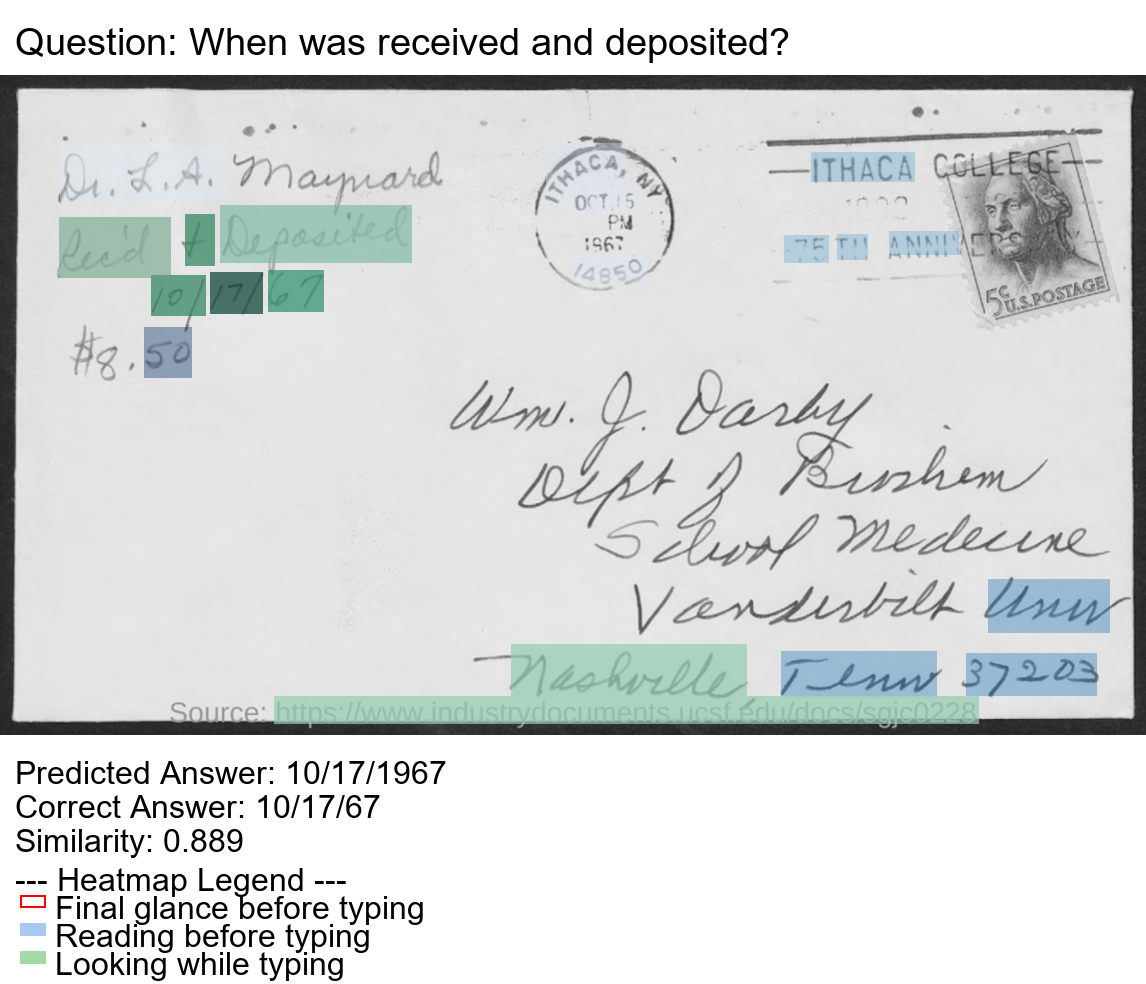 Question: When was received and deposited?
Dr. L.A. Maynard
Rec'd + Deposited
10/17/67
$8.50
ITHACA, NY
OCT 15
PM
1967
14850
ITHACA COLLEGE
75TH ANNIVERS
5c U.S.POSTAGE
Wm. J. Darby
Dept of Biochem
School Medecine
Vanderbilt Univ
Nashville, Tenn 37203
Source: https://www.industrydocuments.ucsf.edu/docs/sgjc0228
Predicted Answer: 10/17/1967
Correct Answer: 10/17/67
Similarity: 0.889
--- Heatmap Legend ---
Final glance before typing
Reading before typing
Looking while typing